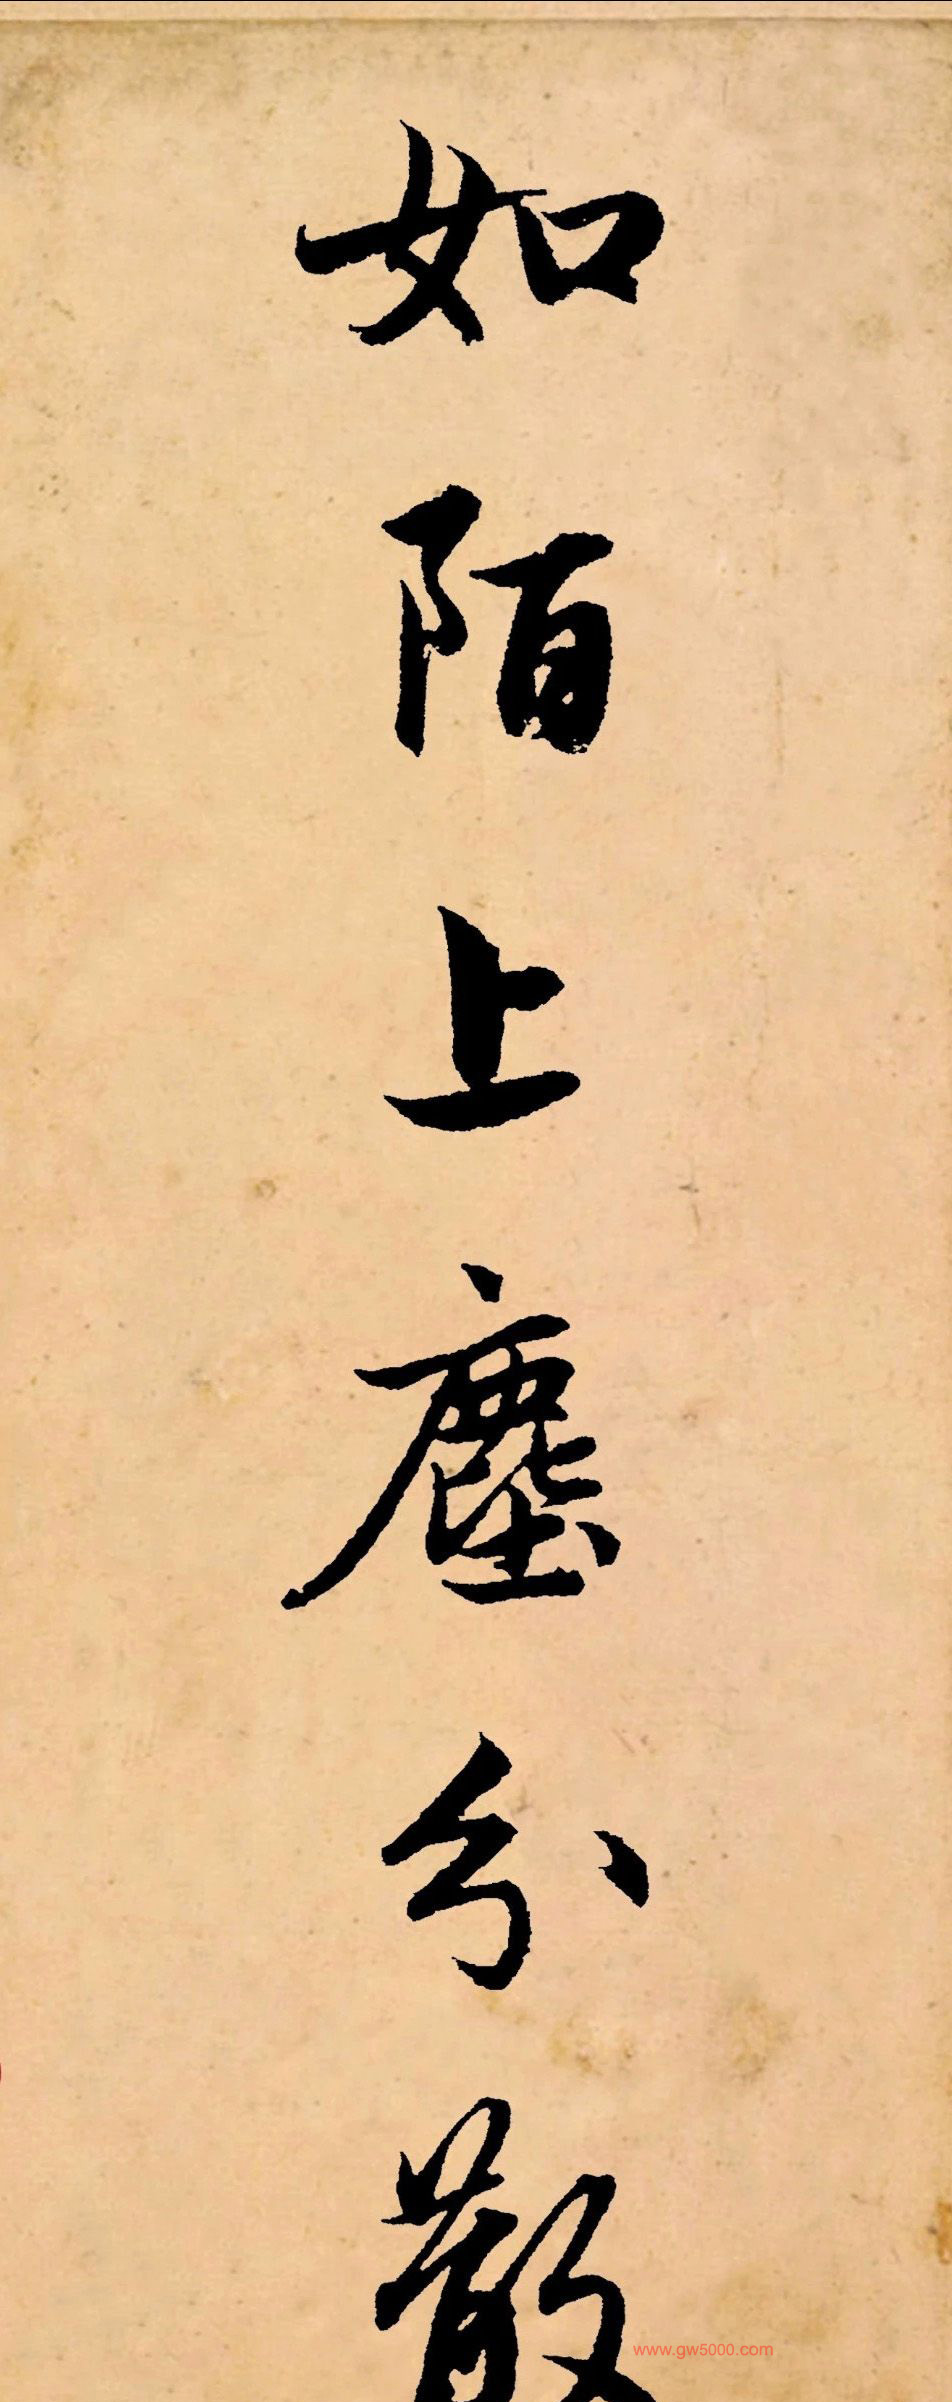 如陌上塵分散
www.gw5000.com